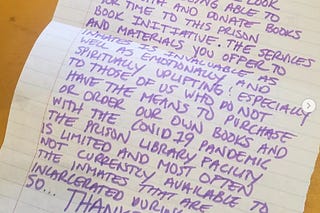 LOOK
FOR TIME ABLE TO
AND DONATE BOOKS
TO THIS PRISON
BOOK INITIATIVE. THE SERVICES
AND MATERIALS YOU OFFER TO
INMATES IS INVALUABLE AS
WELL AS EMOTIONALLY AND
SPIRITUALLY UPLIFTING, ESPECIALLY
TO THOSE OF US WHO DO NOT
HAVE THE MEANS TO PURCHASE
OR ORDER OUR OWN BOOKS AND
WITH THE COVID 19 PANDEMIC
THE PRISON LIBRARY FACILITY
IS LIMITED AND MOST OFTEN
NOT CURRENTLY AVAILABLE TO
THE INMATES THAT ARE
INCARCERATED DURING
SO... THANK